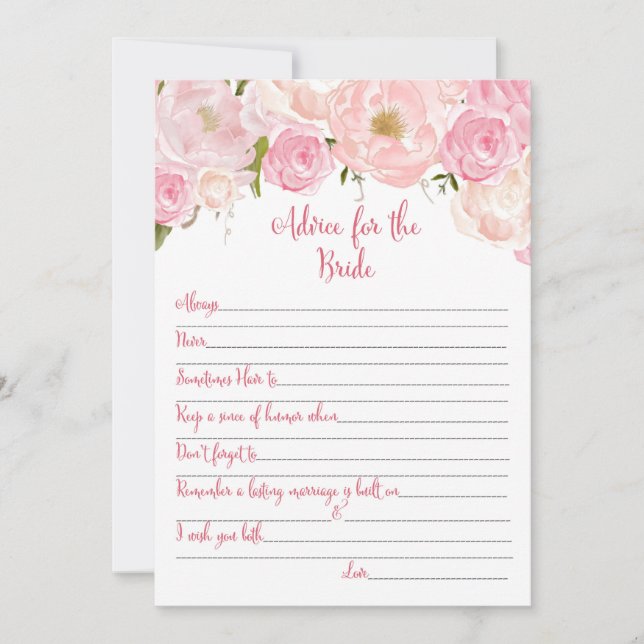 Advice for the
Bride
Always
Never
Sometimes Have to
Keep a since of humor when
Don't forget to
Remember a lasting marriage is built on
&
I wish you both
Love